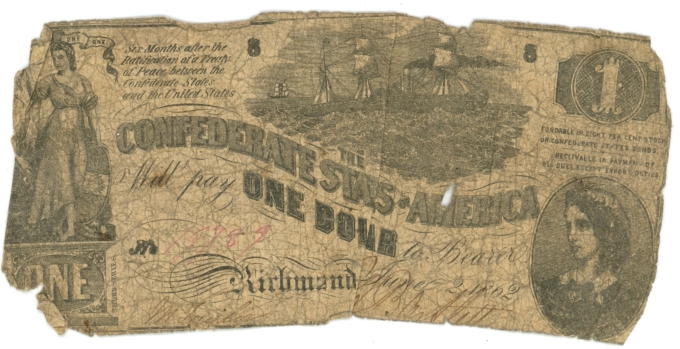 ONE ONE
Six Months after the
Ratification of a Treaty
of Peace between the
Confederate States
and the United States
8
8
1
FUNDABLE IN EIGHT PER CENT STOCK
OR CONFEDERATE STATES BONDS.
RECEIVABLE IN PAYMENT OF
ALL DUES EXCEPT EXPORT DUTIES
THE
CONFEDERATE STAS OF AMERICA
Will pay ONE DOLAR to Bearer
No
Richmond June 2 1862
ONE